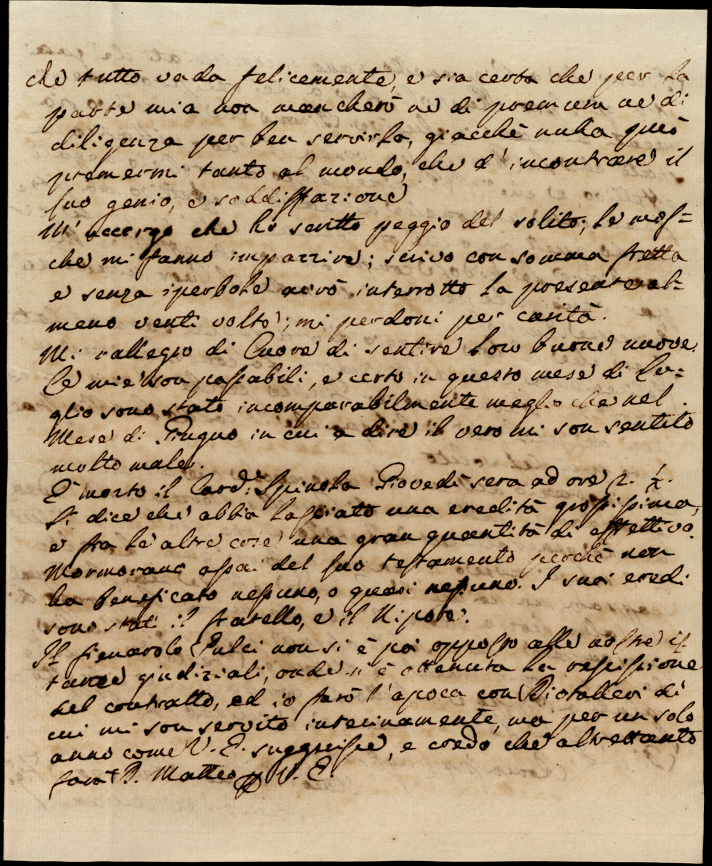 che tutto vada felicemente, e sia certa che per la
parte mia non mancherò ne di premura ne di
diligenza per ben servirla, giacchè nulla può
premermi tanto al mondo, che d'incontrare il
suo genio, e soddisfazione
M'accorgo che ho scritto peggio del solito; le mos=
che mi fanno impazzire; scrivo con somma fretta
e senza iperbole avrò interrotto la presente al=
meno venti volte; mi perdoni per carità.
Mi rallegro di Cuore di sentire loro buone nuove.
Le mie son passabili, e certo in questo mese di Lu=
glio sono state incomparabilmente meglio che nel
Mese di Giugno in cui a dire il vero mi son sentito
molto male.
È morto il Card.e Spinola Giovedì sera ad ore 2. 1/2.
Si dice che abbia lasciato una eredità grossissima,
e fra le altre cose una gran quantità di effettivo.
Mormorano assai del suo testamento perchè non
ha beneficato nessuno, o quasi nessuno. I suoi eredi
sono stati il fratello, e il Nipote.
Il Fienarolo Pulci non si è poi opposto alle nostre is
tanze giudiziali, onde si è ottenuta la rescissione
del contratto, ed io farò l'apoca con Diotallevi di
cui mi son servito interinamente, ma per un solo
anno come V. E. suggerisce, e credo che altrettanto
farà D. Matteo V. E.